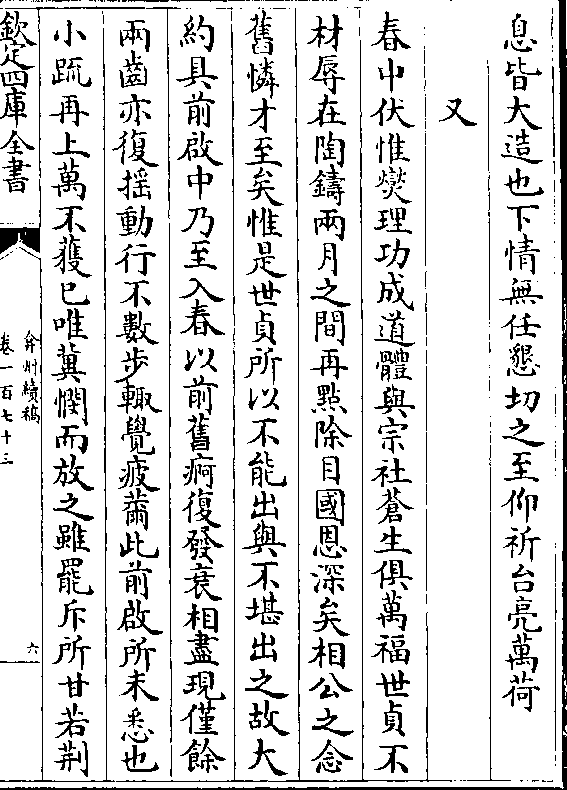 息皆大造也下情無任懇切之至仰祈台亮萬荷
又
春中伏惟爕理功成道體與宗社蒼生俱萬福世貞不
材辱在陶鑄兩月之間再點除目國恩深矣相公之念
舊憐才至矣惟是世貞所以不能出與不堪出之故大
約具前啟中乃至入春以前舊痾復發衰相盡現僅餘
兩齒亦復揺動行不數歩輙覺疲薾此前啟所未悉也
小疏再上萬不獲已唯冀憫而放之雖罷斥所甘若荆
欽定四庫全書
弇州續稿
卷一百七十三
六